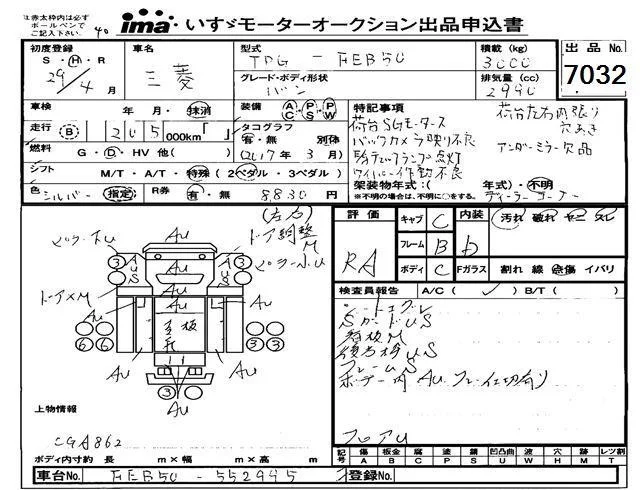 □赤太枠内は必ず
ボールペンで
ご記入下さい。
40
ima いすゞモーターオークション出品申込書
初度登録
S・H・R
29年
4月
車名
三菱
型式
TPG - FEB50
グレード・ボディ形状
バン
積載 (kg)
3000
排気量 (cc)
2990
出品No.
7032
車検
年 月・抹消
装備 A C・P S・P W
特記事項
荷台左右内張り
穴あき
走行 (B) 205 000km「 」
タコグラフ
有・無 別体
(2017年 3月)
荷台SGモータース
バックカメラ映り不良
アンダーミラー欠品
燃料 G・D・HV 他( )
シフト M/T・A/T・特殊 (2ペダル・3ペダル)
ワイパー作動不良
架装物年式:( 年式)・不明
※不明の場合は、不明に○をする。
ディーラーコーナー
色 シルバー (指定)
R券 有・無 8,830円
評価
RA
キャブ C
フレーム B
ボディ C
内装 D
汚れ 破れ ヤニ スレ
Fガラス 割れ 線 点傷 イバリ
検査員報告 A/C( ✓ ) B/T( )
SガードUS
看板M
後方枠US
フレームS
ボデー内AU
フロアU
(左右)
ドア調整
M
AU
3
3
AUS
US
ドア×M
AU
AU
AU
AU
看板
6
6
3
AU
AU
AU
上物情報
CGA862
ボディ内寸約 長 m×幅 m×高 m
記号 傷 板金 腐 塗 錆 凹凸曲 波 穴 跡 レツ割
A B C P S U W H M T
車台No. FEB50 - 552995
登録No.